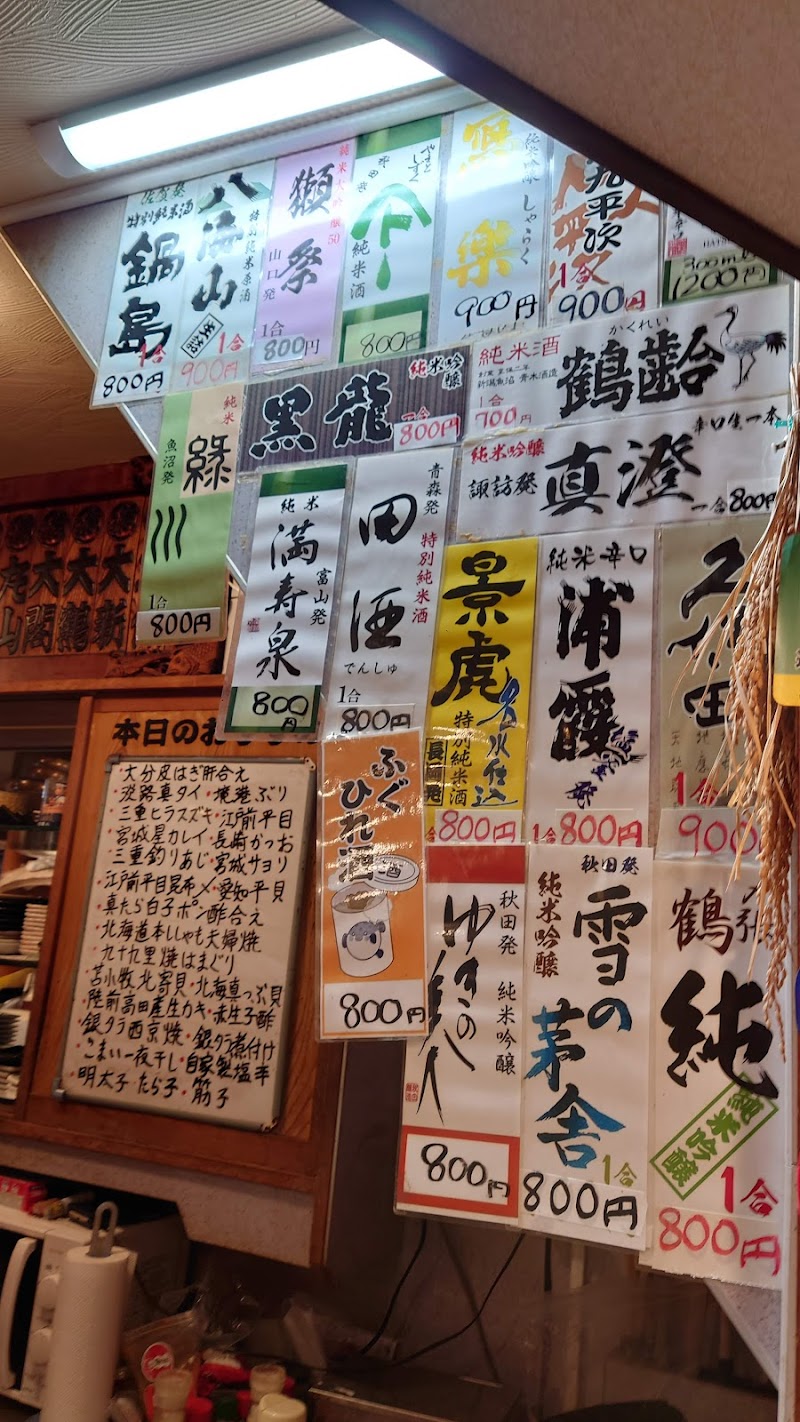 佐賀発
特別純米酒
鍋島
1合
800円
八海山
特別純米原酒
1合
900円
純米大吟醸50
獺祭
山口発
1合
800円
やまと
しずく
純米酒
800円
寫樂
純米吟醸 しゃらく
900円
九平次
1合
900円
300ml
1200円
純米吟醸
黒龍
一合
800円
かくれい
純米酒
鶴齢
新潟魚沼 青木酒造
1合
700円
純米吟醸
諏訪発
真澄
辛口生一本
一合800円
純米
魚沼発
緑川
1合
800円
純米
満寿泉
富山発
800円
青森発
特別純米酒
田酒
でんしゅ
1合
800円
景虎
名水仕込
特別純米酒
800円
純米辛口
浦霞
1合
800円
1合
900
ふぐ
ひれ酒
800円
秋田発 純米吟醸
ゆきの美人
800円
秋田発
純米吟醸
雪の茅舎
1合
800円
鶴
純
純米吟醸
1合
800円
本日のお
・大分皮はぎ肝合え
・淡路真タイ・境港ぶり
・三重ヒラスズキ・江戸前平目
・宮城星カレイ・長崎かつお
・三重釣りあじ・宮城サヨリ
・江戸前平目昆布〆・愛知平貝
・真たら白子ポン酢合え
・北海道本ししゃも夫婦焼
・九十九里焼はまぐり
・苫小牧北寄貝・北海真つぶ貝
・陸前高田産生カキ・赤生子酢
・銀タラ西京焼・銀タラ煮付け
・こまい一夜干し・自家製塩辛
・明太子・たら子・筋子